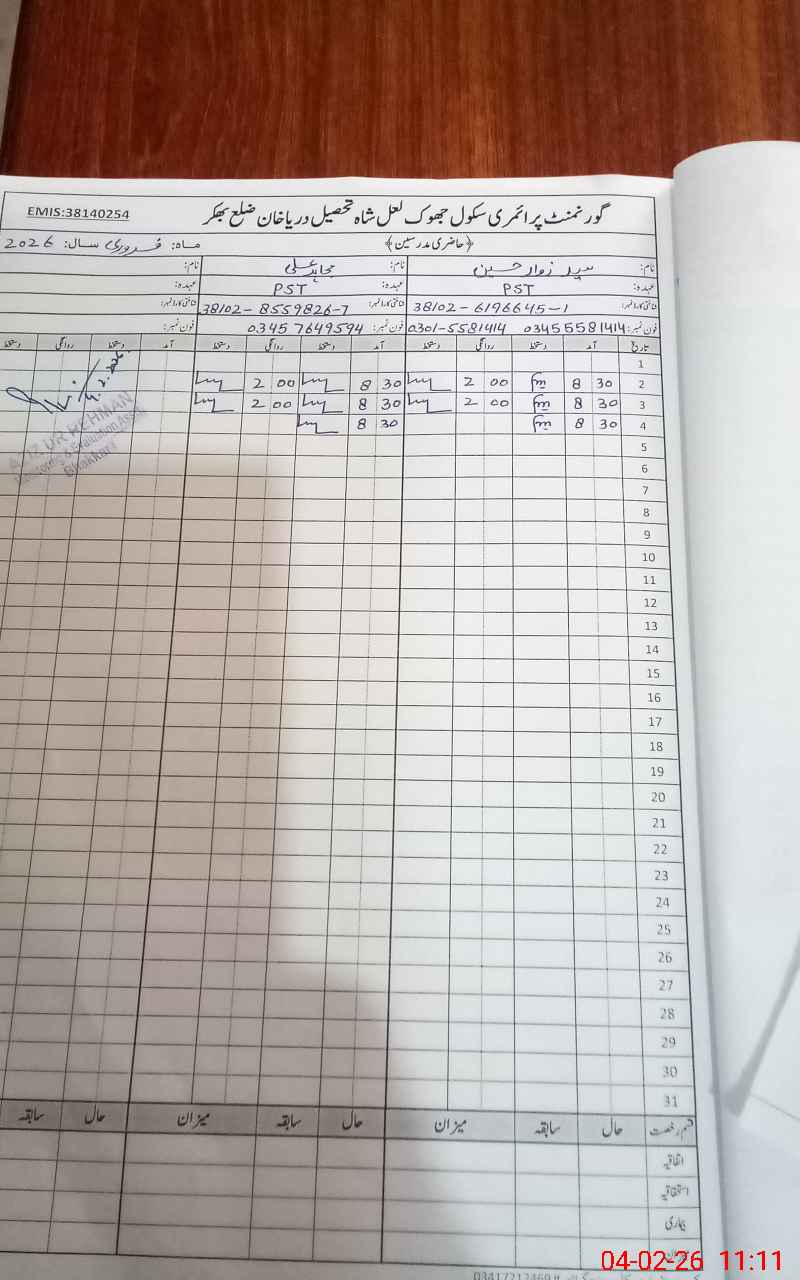 گورنمنٹ پرائمری سکول جھوک لعل شاہ تحصیل دریا خان ضلع بھکر EMIS:38140254
﴿حاضری مدرسین﴾ ماہ: فروری سال: 2026
نام: سید زوار حسین نام: مجاہد علی نام:
عہدہ: PST عہدہ: PST عہدہ:
شناختی کارڈ نمبر: 38102-6196645-1 شناختی کارڈ نمبر: 38102-8559826-7 شناختی کارڈ نمبر:
فون نمبر: 03455581414 0301-5581414 فون نمبر: 03457649594 فون نمبر:
تاریخ آمد دستخط روانگی دستخط آمد دستخط روانگی دستخط آمد دستخط روانگی دستخط
1
2 8 30 2 00 8 30 2 00
3 8 30 2 00 8 30 2 00
4 8 30 8 30
4.2.2026
UR REHMAN
Monitoring & Evaluation
Bhakkar
5
6
7
8
9
10
11
12
13
14
15
16
17
18
19
20
21
22
23
24
25
26
27
28
29
30
31
قسم رخصت حال سابقہ میزان حال سابقہ میزان حال سابقہ
اتفاقیہ
استحقاقیہ
بیماری
04-02-26 11:11